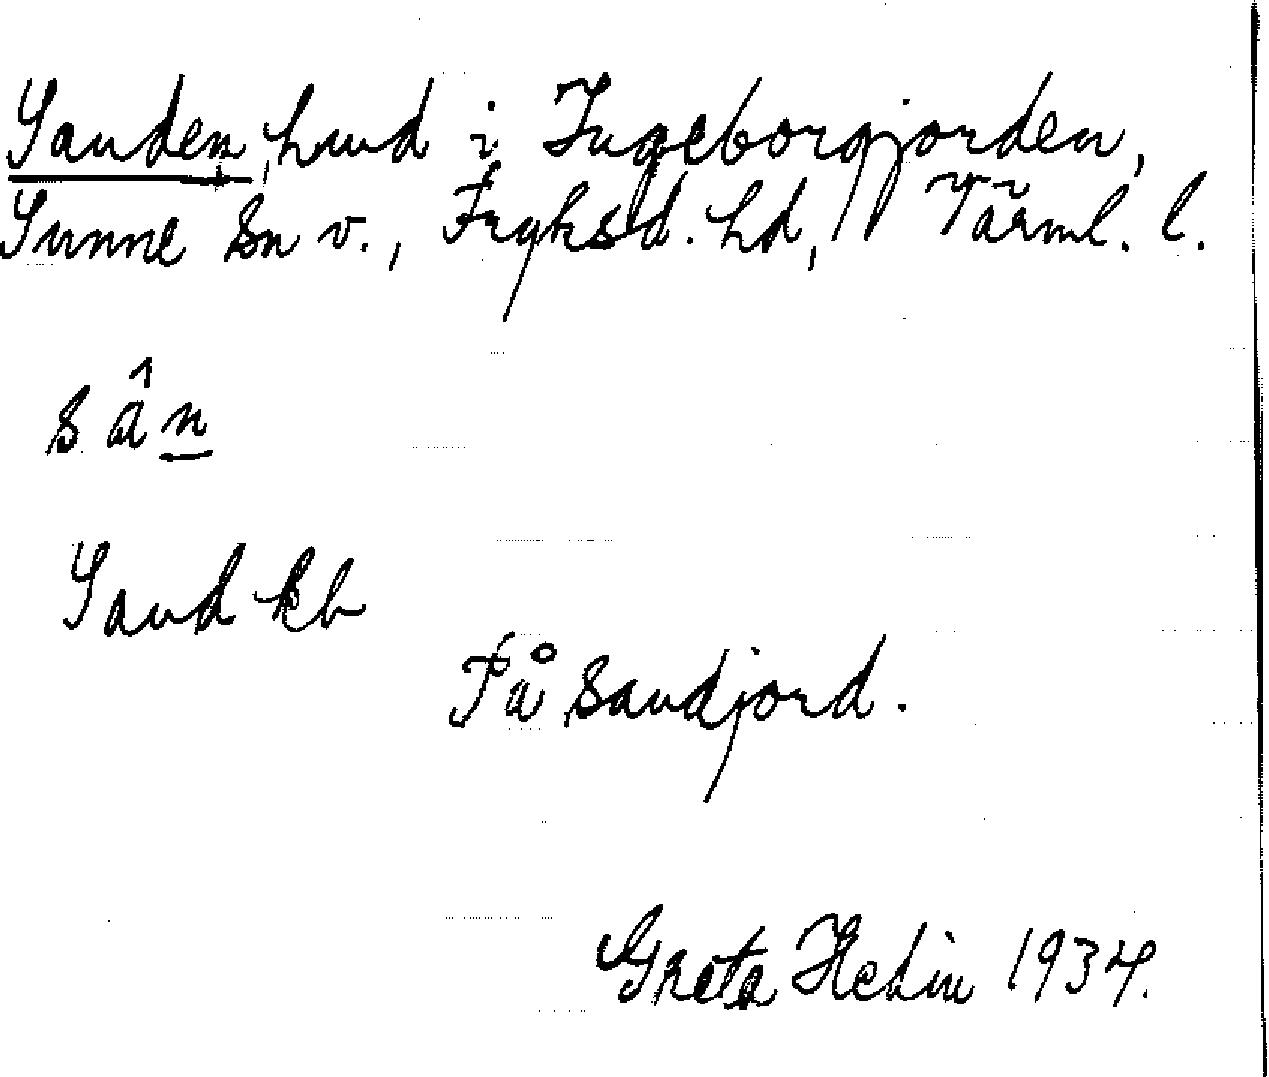 Sanden, hmd i Ingeborgjorden,
Sunne Sn v., Fryksd. hd, Värml. l.
sân
Sand kb
På sandjord.
Greta Hedin 1934.